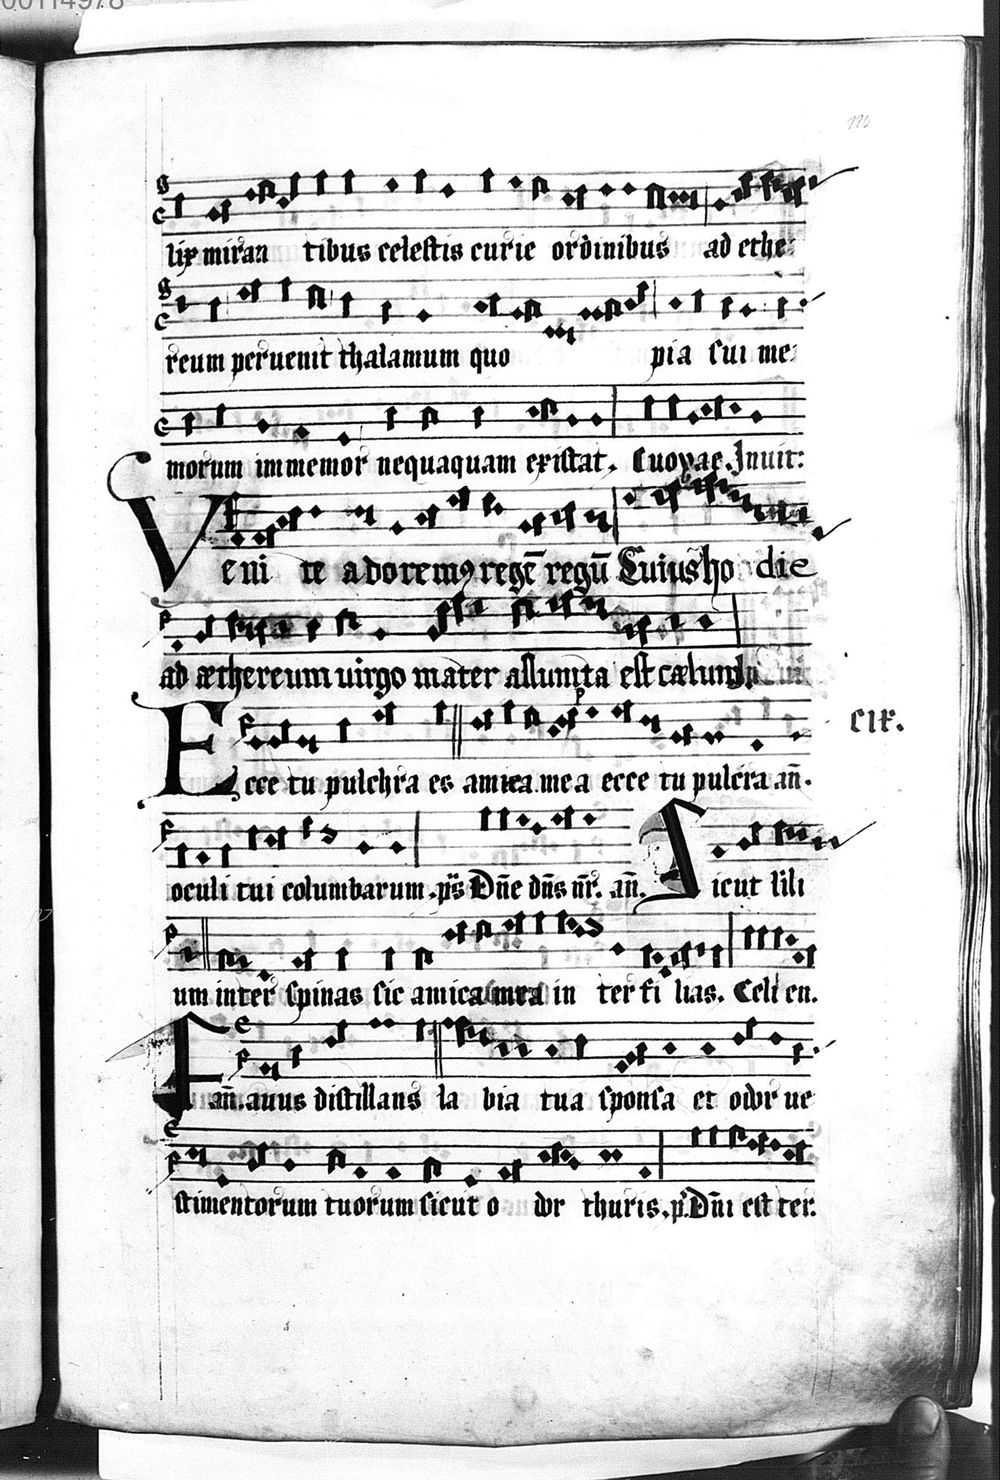 00114978
110
lix miran tibus celestis curie ordinibus ad ethe-
reum peruenit thalamum quo pia sui me-
morum immemor nequaquam existat. Euovae. Inuit:
Veni te adoremus regē regū Cuius ho die
ad æthereum uirgo mater assumta est cælum.
Ecce tu pulchra es amica mea ecce tu pulcra añ.
cix.
oculi tui columbarum. p̄s Dn̄e dn̄s nr̄. añ. Sicut lili
um inter spinas sic amica mea in ter fi lias. Celi en.
añ. Fauus distillans la bia tua sponsa et odor ue
stimentorum tuorum sicut o dor thuris. p̄. Dn̄i est ter.